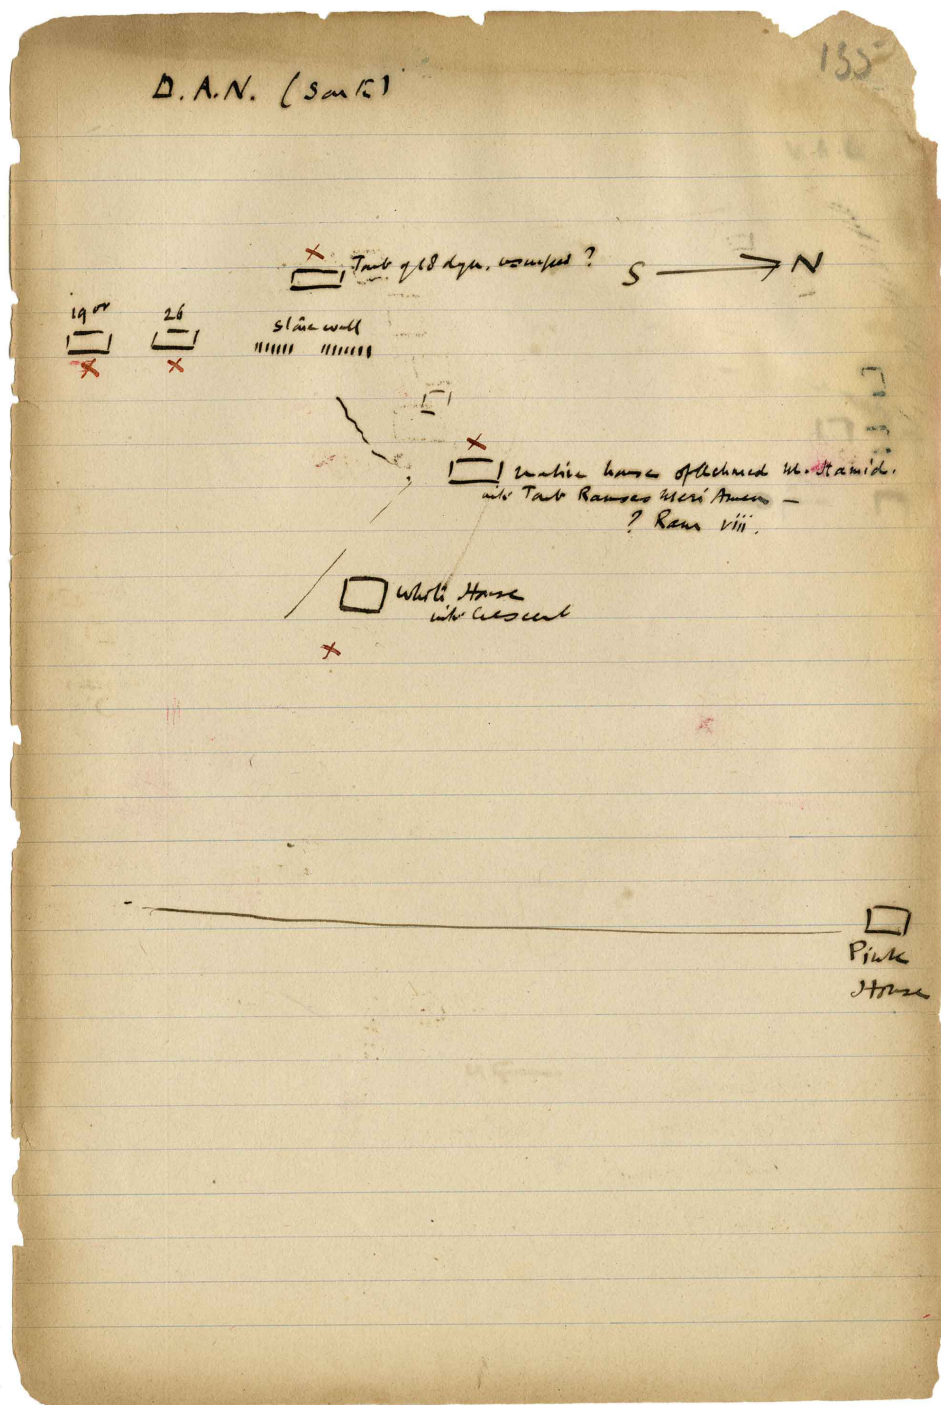 135
D.A.N. (South)
Tomb of 18 dyn. usurped ?
S N
19 or 26
stone wall
native house of Achmed M. Hamid.
with Tomb Ramses Meri Amen —
? Rams viii.
White House
with Crescent
Pink
House